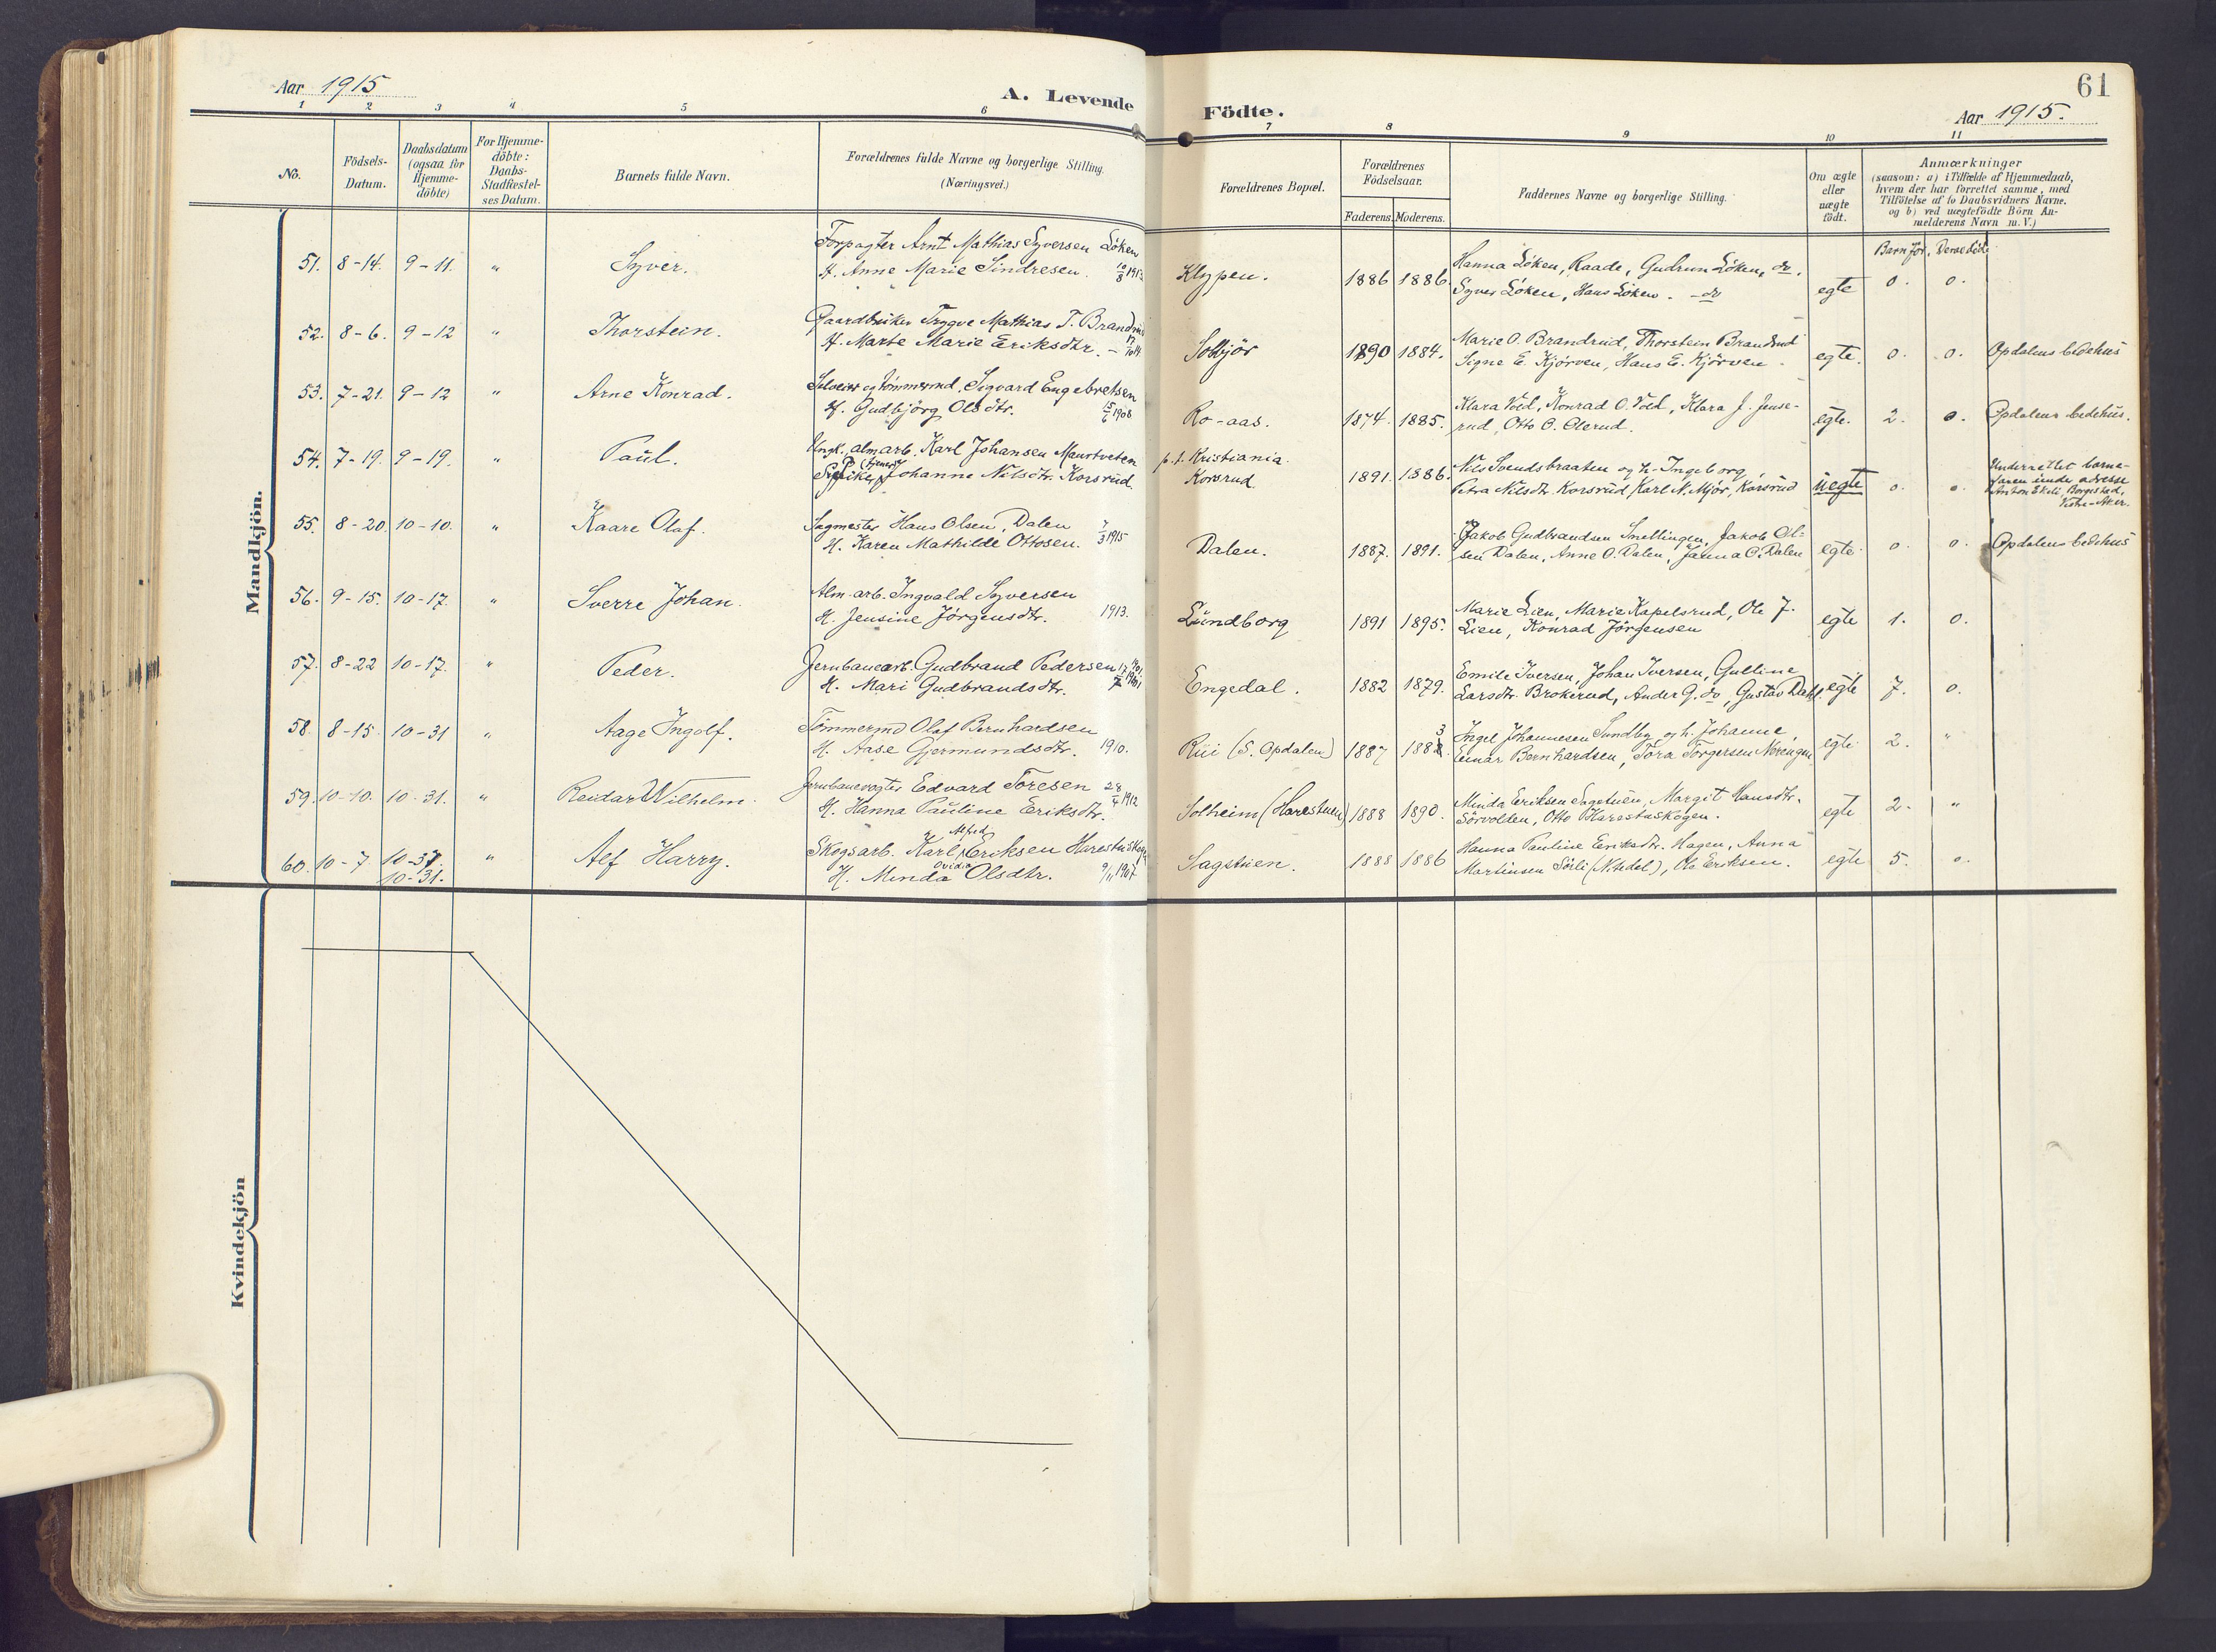 Aar 1915
A. Levende
1 2 3 4 5 6
No.
Födsels-
Datum.
Daabsdatum
(ogsaa for
Hjemme-
döbte)
For Hjemme-
döbte:
Daabs-
Stadfæstel-
ses Datum.
Barnets fulde Navn.
Forældrenes fulde Navne og borgerlige Stilling.
(Næringsvei.)
Mandkjön.
51. 8-14. 9-11. " Syver. Forpagter Arnt Mathias Syversen Löken
H. Anne Marie Sindresen.
52. 8-6. 9-12 " Thorstein. Gaardbruker Trygve Mathias T. Brandrud
H. Marte Marie Eriksdtr.
53. 7-21. 9-12 " Arne Konrad. Selveier og tömmermd. Sigvard Engebretsen
H. Gudbjörg Olsdtr. 15/6 1908
54. 7-19. 9-19. " Paul. Ungk. almarb. Karl Johansen Maurtveten
Pike (tjener) Johanne Nilsdtr. Korsrud.
55. 8-20. 10-10. " Kaare Olaf. Sagmester Hans Olsen, Dalen
H. Karen Mathilde Ottosen. 7/3 1915
56. 9-15. 10-17. " Sverre Johan. Alm. arb. Ingvald Syversen
H. Jensine Jörgensdtr. 1913.
57. 8-22 10-17. " Peder. Jernbanearb. Gudbrand Pedersen
H. Mari Gudbrandsdtr.
58. 8-15. 10-31 " Aage Ingolf. Tömmermd Olaf Bernhardsen
H. Aase Gjermundsdtr. 1910.
59. 10-10. 10-31. " Reidar Wilhelm. Jernbanevogter Edvard Toresen 28/4 1912
H. Hanna Pauline Eriksdtr.
60. 10-7 10-31. " Alf Harry. Skogsarb. Karl Alfred Eriksen
10-31. H. Minda Ovidia Olsdtr. 9/11 1907
Kvindekjön
Födte.
61
Aar 1915.
7 8 9 10 11
Forældrenes Bopæl.
Forældrenes
Födselsaar.
Faderens. Moderens.
Faddernes Navne og borgerlige Stilling.
Om ægte
eller
uægte
födt.
Anmærkninger
(saasom: a) i Tilfælde af Hjemmedaab,
hvem der har forrettet samme, med
Tilföielse af to Daabsvidners Navne.
og b) ved uægtefödte Börn An-
melderens Navn m. V.)
Barn för. Derav döde
Klypen. 1886 1886. Hanna Löken, Raade, Gudrun Löken, do.
Syver Löken, Hans Löken. - do egte 0. 0.
Solbjör 1890 1884. Marie O. Brandrud, Thorstein Brandrud
Signe E. Kjörven, Hans E. Kjörven. egte. 0. 0. Opdalens bedehus
Ro-aas. 1874. 1885. Klara Vold, Konrad O. Vold, Klara J. Jense-
rud, Otto O. Olerud. egte. 2. 0. Opdalens bedehus.
p.t. Kristiania.
Korsrud 1891. 1886. Nils Svendsbraaten og h. Ingeborg,
Petra Nilsdtr. Korsrud, Karl N. Mjör, Korsrud uegte 0. 0. Underrettet barne-
faren adresse
Anton Ekeli, Borgestad,
Vestre-Aker.
Dalen. 1887. 1891. Jakob Gudbrandsen Snellingen, Jakob Ol-
sen Dalen, Anne O. Dalen, Janna O. Dalen egte 0. 0. Opdalens bedehus
Lundborg 1891 1895. Marie Lien, Marie Kapelsrud, Ole J.
Lien, Konrad Jörgensen egte 1. 0.
Engedal. 1882 1879. Emile Iversen, Johan Iversen, Gulline
Larsdtr. Brokerud, Ander G. do, Gustav Dahl. egte 7. 0.
Rui (S. Opdalen) 1887 1883 Ingel Johannesen Sundby og h. Johanne,
Einar Bernhardsen, Tora Torgersen egte 2. "
Solheim (Harestuen) 1888 1890. Minda Eriksen Sagstuen, Margit Hansdtr.
Sörvollen, Otto Harestuskogen. egte 2. "
Sagstuen. 1888 1886 Hanna Pauline Eriksdtr. Hagen, Anna
Martinsen Sörli (Nitedal), Ole Eriksen. egte 5. 0.